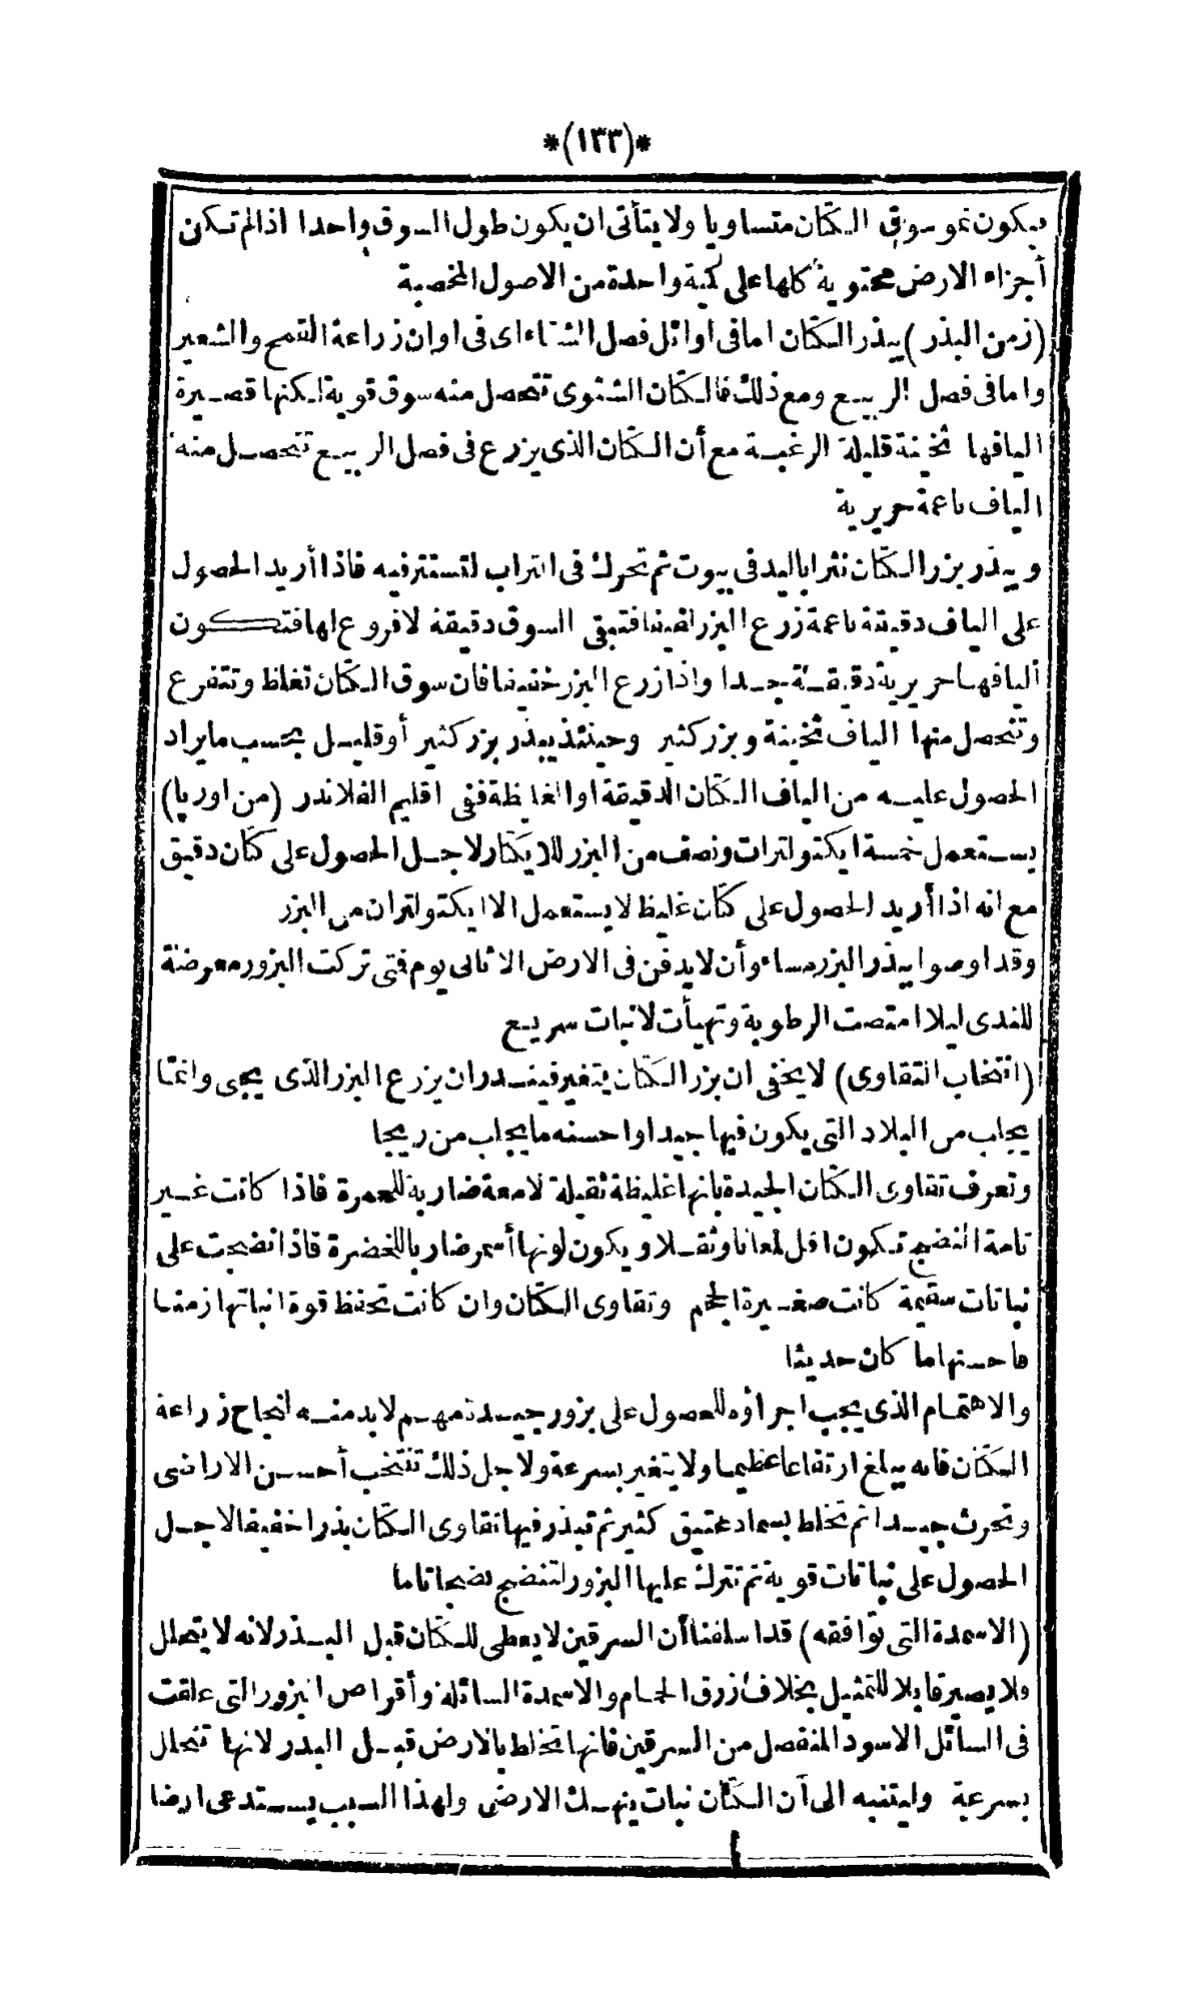 *(١٣٣)*
يكون نمو سوق الكتان متساويا ولا يتأتى ان يكون طول السوق واحدا اذا لم تكن
أجزاء الارض محتوية كلها على كمية واحدة من الاصول المخصبة
(زمن البذر) يبذر الكتان اما فى اوائل فصل الشتاء اى فى اوان زراعة القمح والشعير
واما فى فصل الربيع ومع ذلك فالكتان الشتوى تتحصل منه سوق قوية لكنها قصيرة
اليافها ثخينة قليلة الرغبة مع أن الكتان الذى يزرع فى فصل الربيع تتحصل منه
الياف ناعمة حريرية
ويبذر بزر الكتان نثرا باليد فى بيوت ثم تحرك فى التراب لتستتر فيه فاذا أريد الحصول
على الياف دقيقة ناعمة زرع البزر لفيفا فتبقى السوق دقيقة لا فروع لها فتكون
أليافها حريرية دقيقة جدا واذا زرع البزر خفيفا فان سوق الكتان تغلظ وتتفرع
وتتحصل منها الياف ثخينة وبزر كثير وحينئذ يبذر بزر كثير أو قليل بحسب ما يراد
الحصول عليه من الياف الكتان الدقيقة او الغليظة ففى اقليم الفلاندر (من اوربا)
يستعمل خمسة ايكتولترات ونصف من البزر للايكتار لاجل الحصول على كتان دقيق
مع انه اذا أريد الحصول على كتان غليظ لا يستعمل الا ايكتولتران من البزر
وقد اوصوا ببذر البزر مساء وأن لا يدفن فى الارض الا ثانى يوم فتى تركت البزور معرضة
للندى ليلا امتصت الرطوبة وتهيأت لانبات سريع
(انتخاب التقاوى) لا يخفى ان بزر الكتان يتغير فيندر ان يزرع البزر الذى يجى وانما
يجلب من البلاد التى يكون فيها جيدا واحسنه ما يجلب من ريجا
وتعرف تقاوى الكتان الجيدة بانها غليظة ثقيلة لامعة ضاربة للحمرة فاذا كانت غير
تامة النضج تكون اقل لمعانا وثقلا ويكون لونها أسمر ضاربا للخضرة فاذا نضجت على
نباتات سقيمة كانت صغيرة الحجم وتقاوى الكتان وان كانت تحفظ قوة انباتها زمنا
فاحسنها ما كان حديثا
والاهتمام الذى يجب اجراؤه للحصول على بزور جيدة مهم لا بد منه لنجاح زراعة
الكتان فانه يبلغ ارتفاعا عظيما ولا يتغير بسرعة ولاجل ذلك تنتخب أحسن الاراضى
وتحرث جيدا ثم تخلط بسماد عتيق كثير ثم تبذر فيها تقاوى الكتان بذرا خفيفا لاجل
الحصول على نباتات قوية ثم تترك عليها البزور لتنضج نضجا تاما
(الاسمدة التى توافقه) قد اسلفنا أن السرقين لا يعطى للكتان قبل البذر لانه لا يتحلل
ولا يصير قابلا للتمثيل بخلاف زرق الحمام والاسمدة السائلة وأقراص البزور التى علقت
فى السائل الاسود المنفصل من السرقين فانها تخلط بالارض قبل البدر لانها تنحلل
بسرعة وليتنبه الى أن الكتان نبات ينهك الارض ولهذا السبب يستدعى ارضا